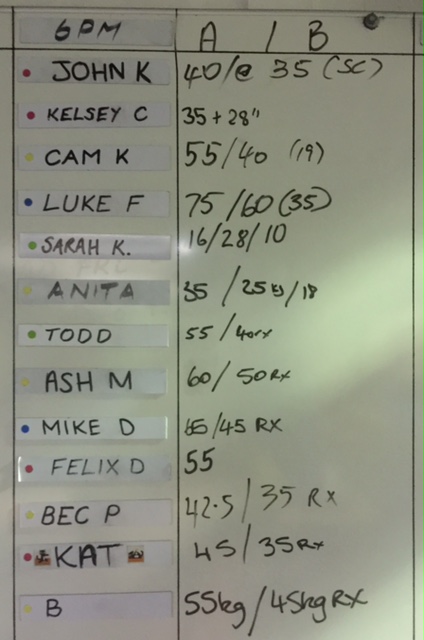 6PM A / B
JOHN K 40/@ 35 (SC)
KELSEY C 35 + 28"
CAM K 55/40 (19)
LUKE F 75/60 (35)
SARAH K. 16/28/10
ANITA 35 /25kg/18
TODD 55 /40rx
ASH M 60/ 50Rx
MIKE D /45 RX
FELIX D 55
BEC P 42.5/35 Rx
KAT 45/35Rx
B 55kg/45kgRX